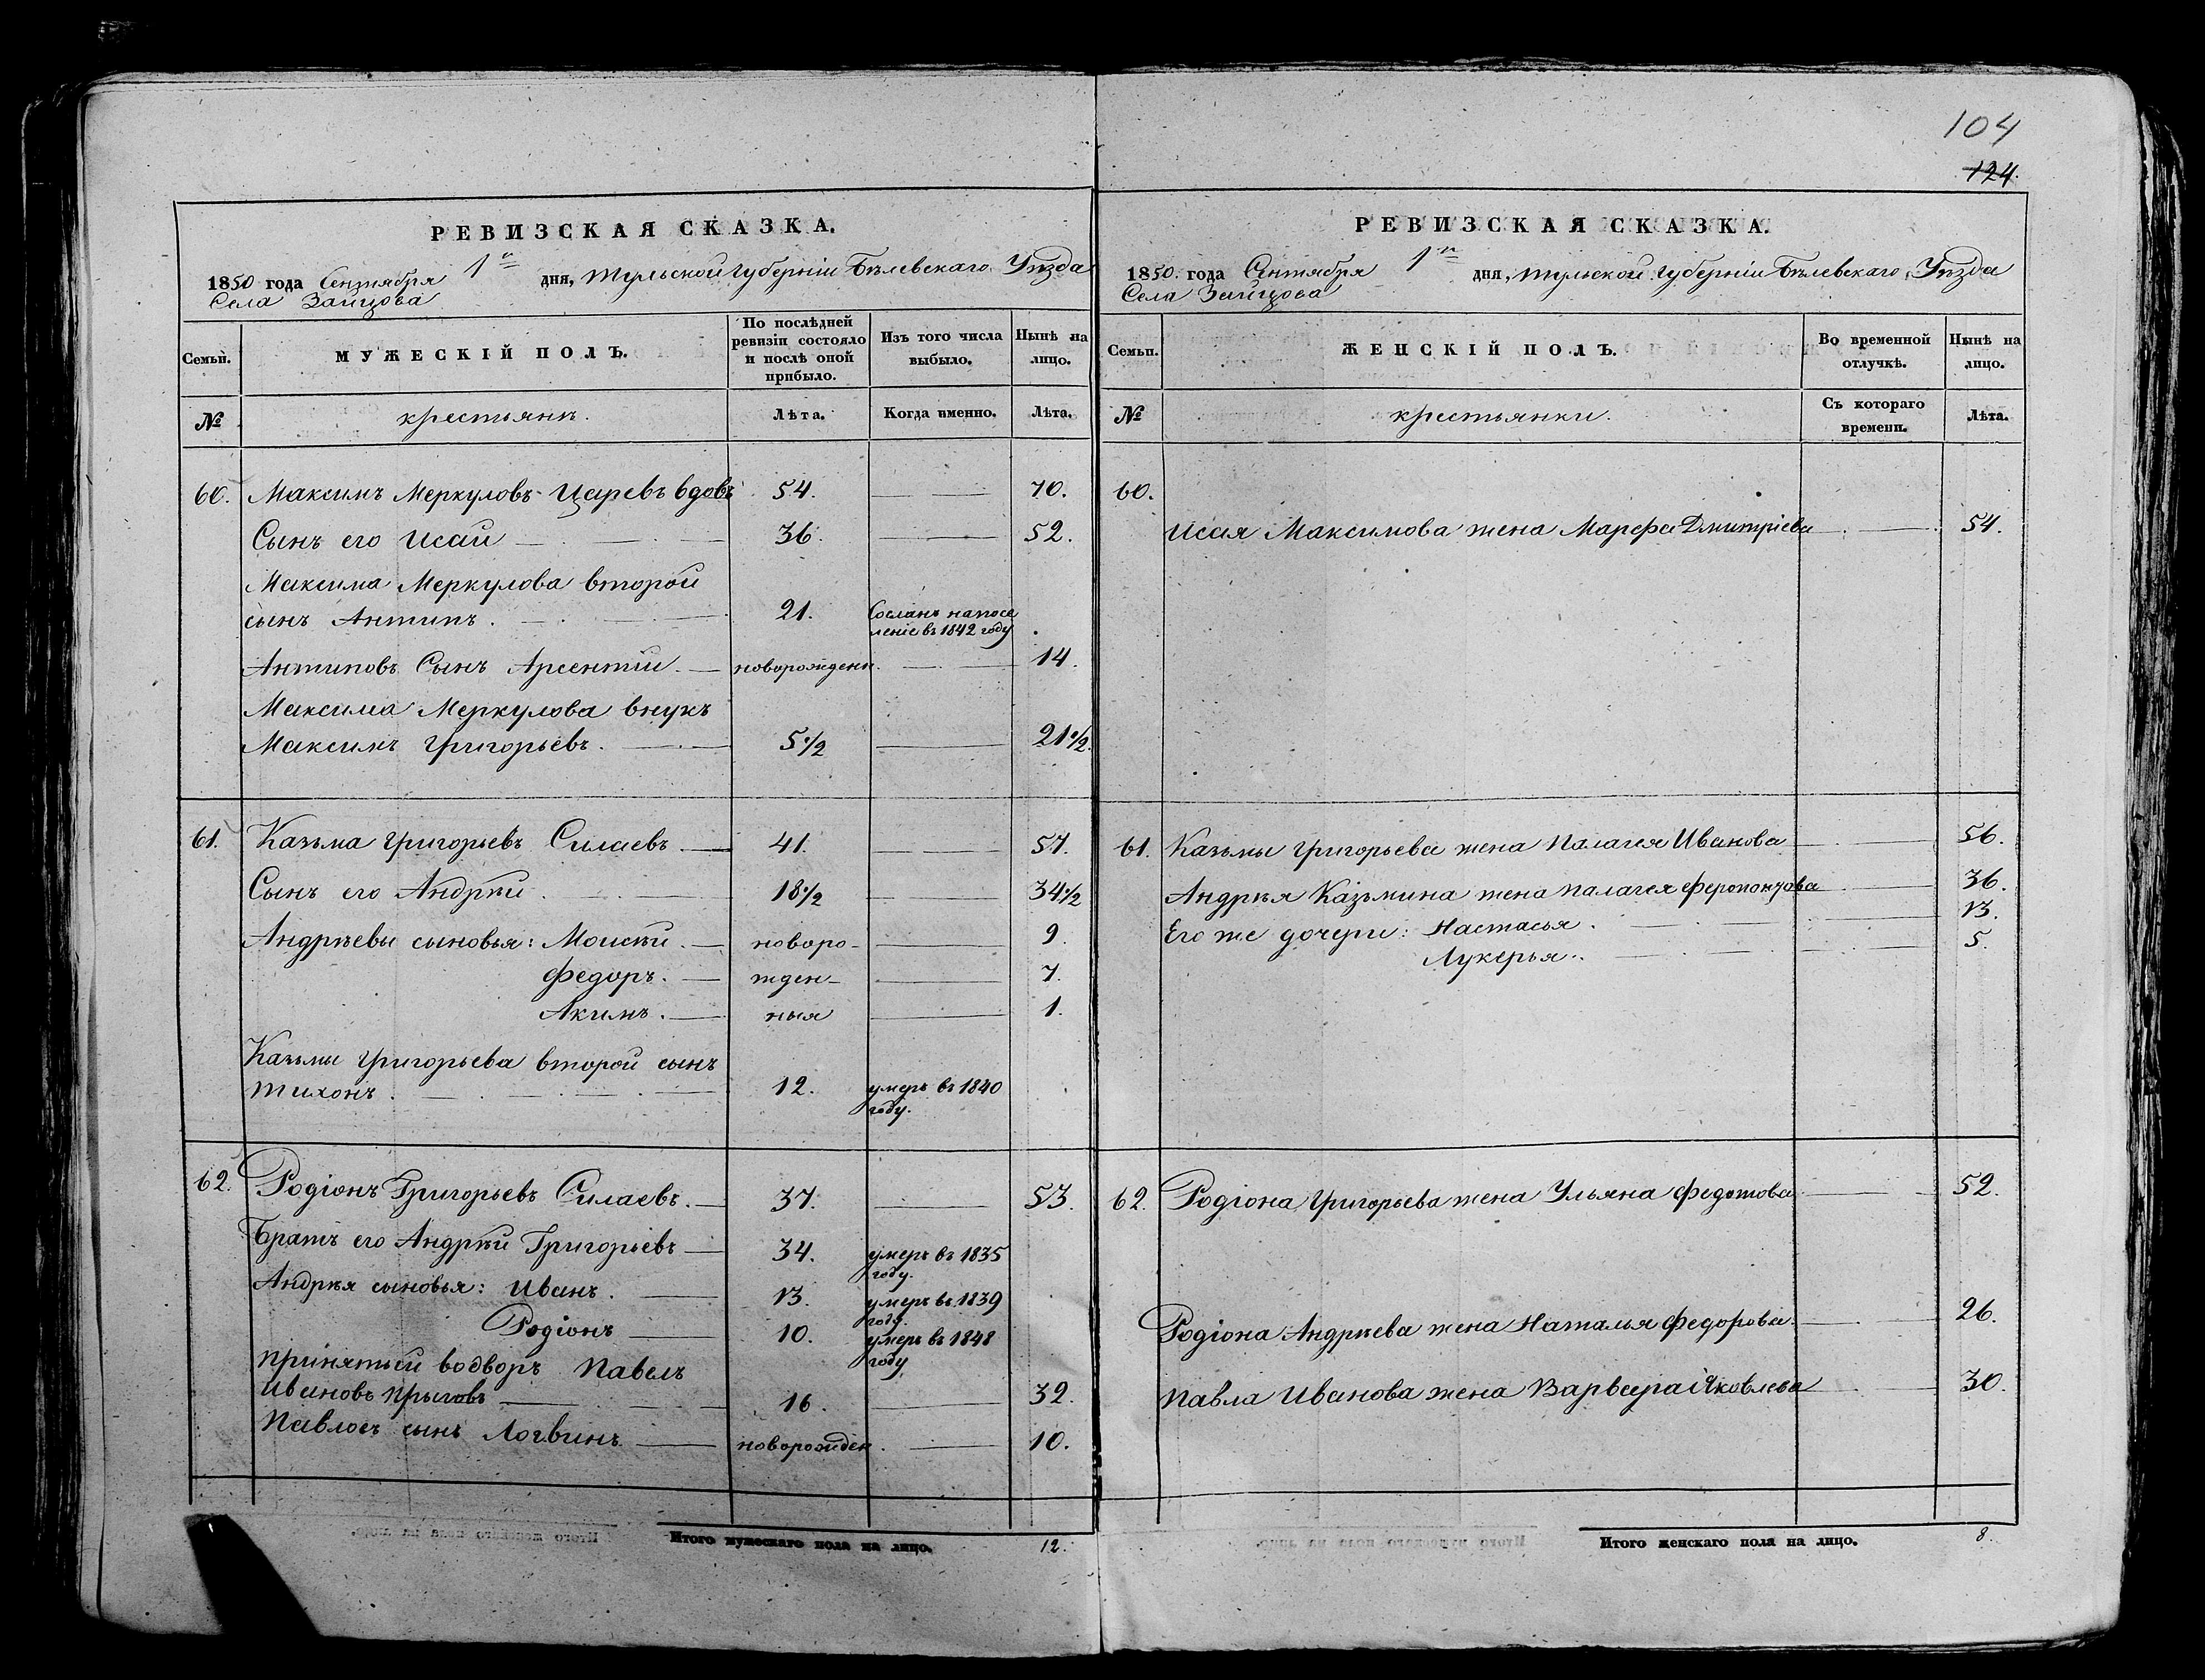 104
124.
РЕВИЗСКАЯ СКАЗКА.
1850 года Сентября 1го дня, Тульской губерніи Бѣлевскаго Уѣзда
Села Зайцова
Семьи. МУЖЕСКІЙ ПОЛЪ. По послѣдней ревизіи состояло и послѣ оной прибыло. Изъ того числа выбыло. Нынѣ на лицо.
№ крестьянъ. Лѣта. Когда именно. Лѣта.
60. Максимъ Меркуловъ Царевъ вдовъ 54. 70.
Сынъ его Исай 36. 52.
Максима Меркулова второй
сынъ Антипъ. 21. Сосланъ на посе
леніе въ 1842 году
Антиповъ Сынъ Арсентій новорожденн. 14.
Максима Меркулова внукъ
Максимъ Григорьевъ. 5 1/2 21 1/2.
61. Казьма Григорьевъ Силаевъ. 41. 57.
Сынъ его Андрѣй 18 1/2 34 1/2
Андрѣевы сыновья: Моисѣй. новоро- 9.
Федоръ. жден- 7.
Акимъ. ныя 1.
Казьмы Григорьева второй сынъ
Тихонъ. 12. умеръ въ 1840
году.
62. Родіонъ Григорьевъ Силаевъ. 37. 53.
Братъ его Андрѣй Григорьевъ 34. умеръ въ 1835
году.
Андрѣя сыновья: Иванъ. 13. умеръ въ 1839
году.
Родіонъ 10. умеръ въ 1848
году
Принятый во дворъ Павелъ
Ивановъ Прыговъ 16. 32.
Павловъ сынъ Логвинъ новорожден. 10.
Итого мужескаго пола на лицо. 12.
РЕВИЗСКАЯ СКАЗКА.
1850. года Сентября 1го дня, Тульской губерніи Бѣлевскаго Уѣзда
Села Зайцова
Семьи. ЖЕНСКІЙ ПОЛЪ. Во временной отлучкѣ. Нынѣ на лицо.
№ крестьянки. Съ котораго времени. Лѣта.
60.
Исая Максимова жена Марфа Дмитріева 54.
61. Казьмы Григорьева жена Палагея Иванова 56.
Андрѣя Казьмина жена Палагея Феропонтова 36.
Его же дочери: Настасья. 13.
Лукерья. 5.
62. Родіона Григорьева жена Ульяна Федотова 52.
Родіона Андрѣева жена Наталья Федорова. 26.
Павла Иванова жена Варвара Яковлева 30.
Итого женскаго пола на лицо. 8.